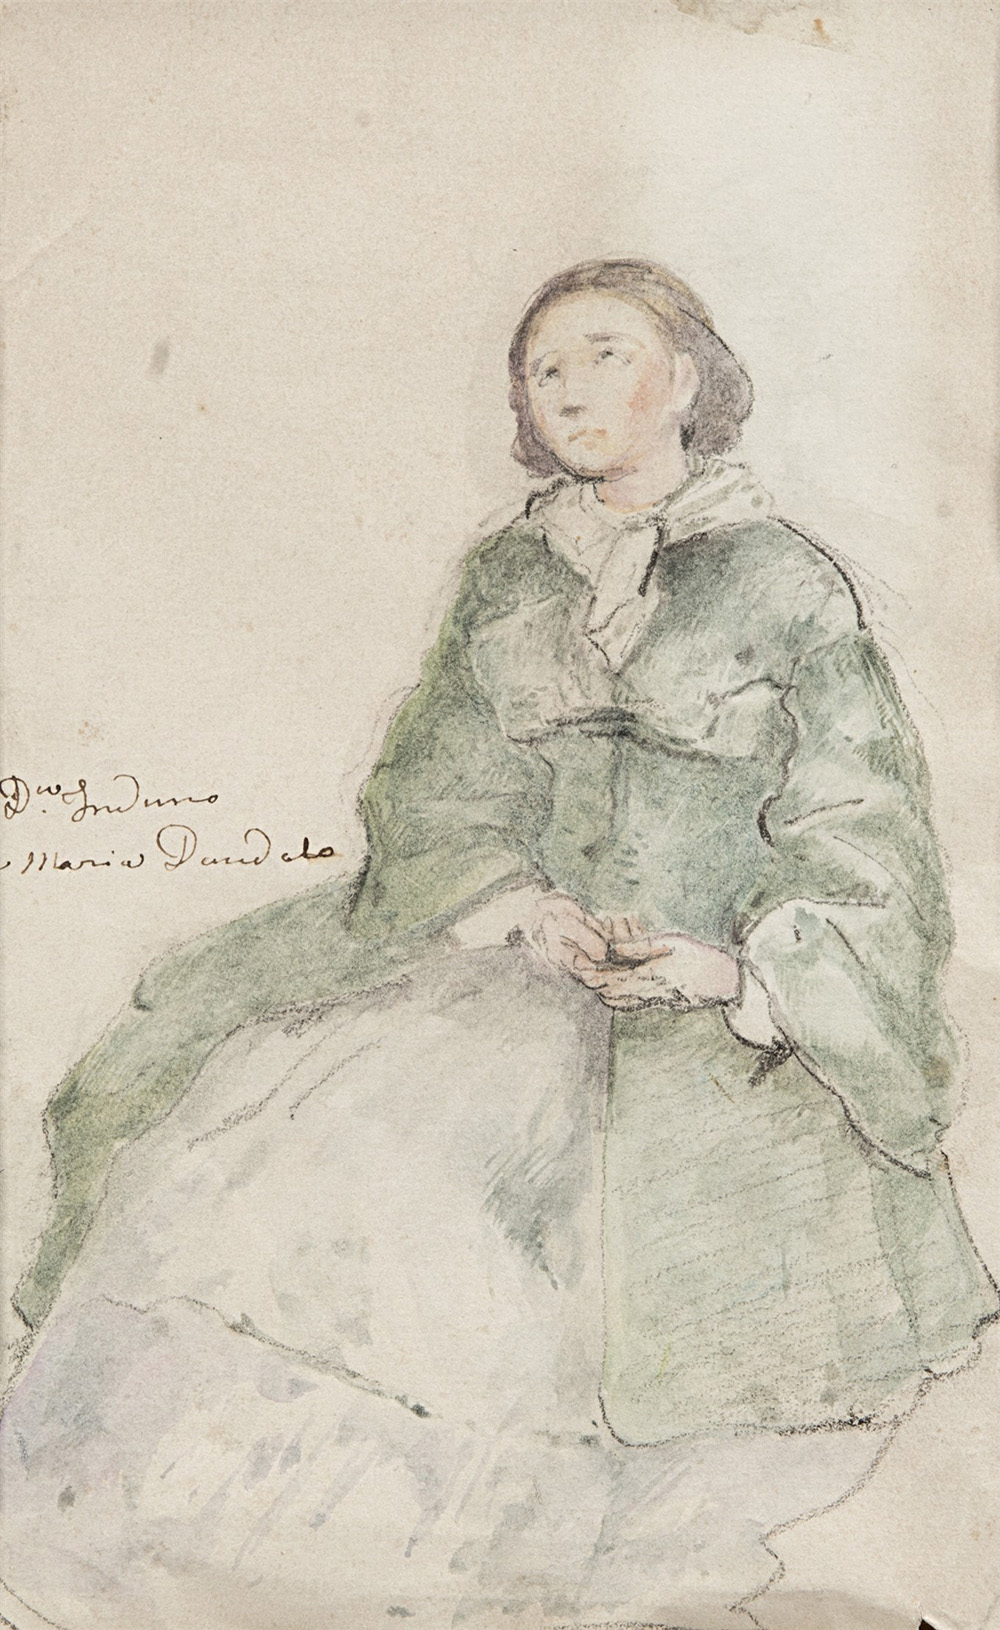 D.co Induno
a Maria Dandolo